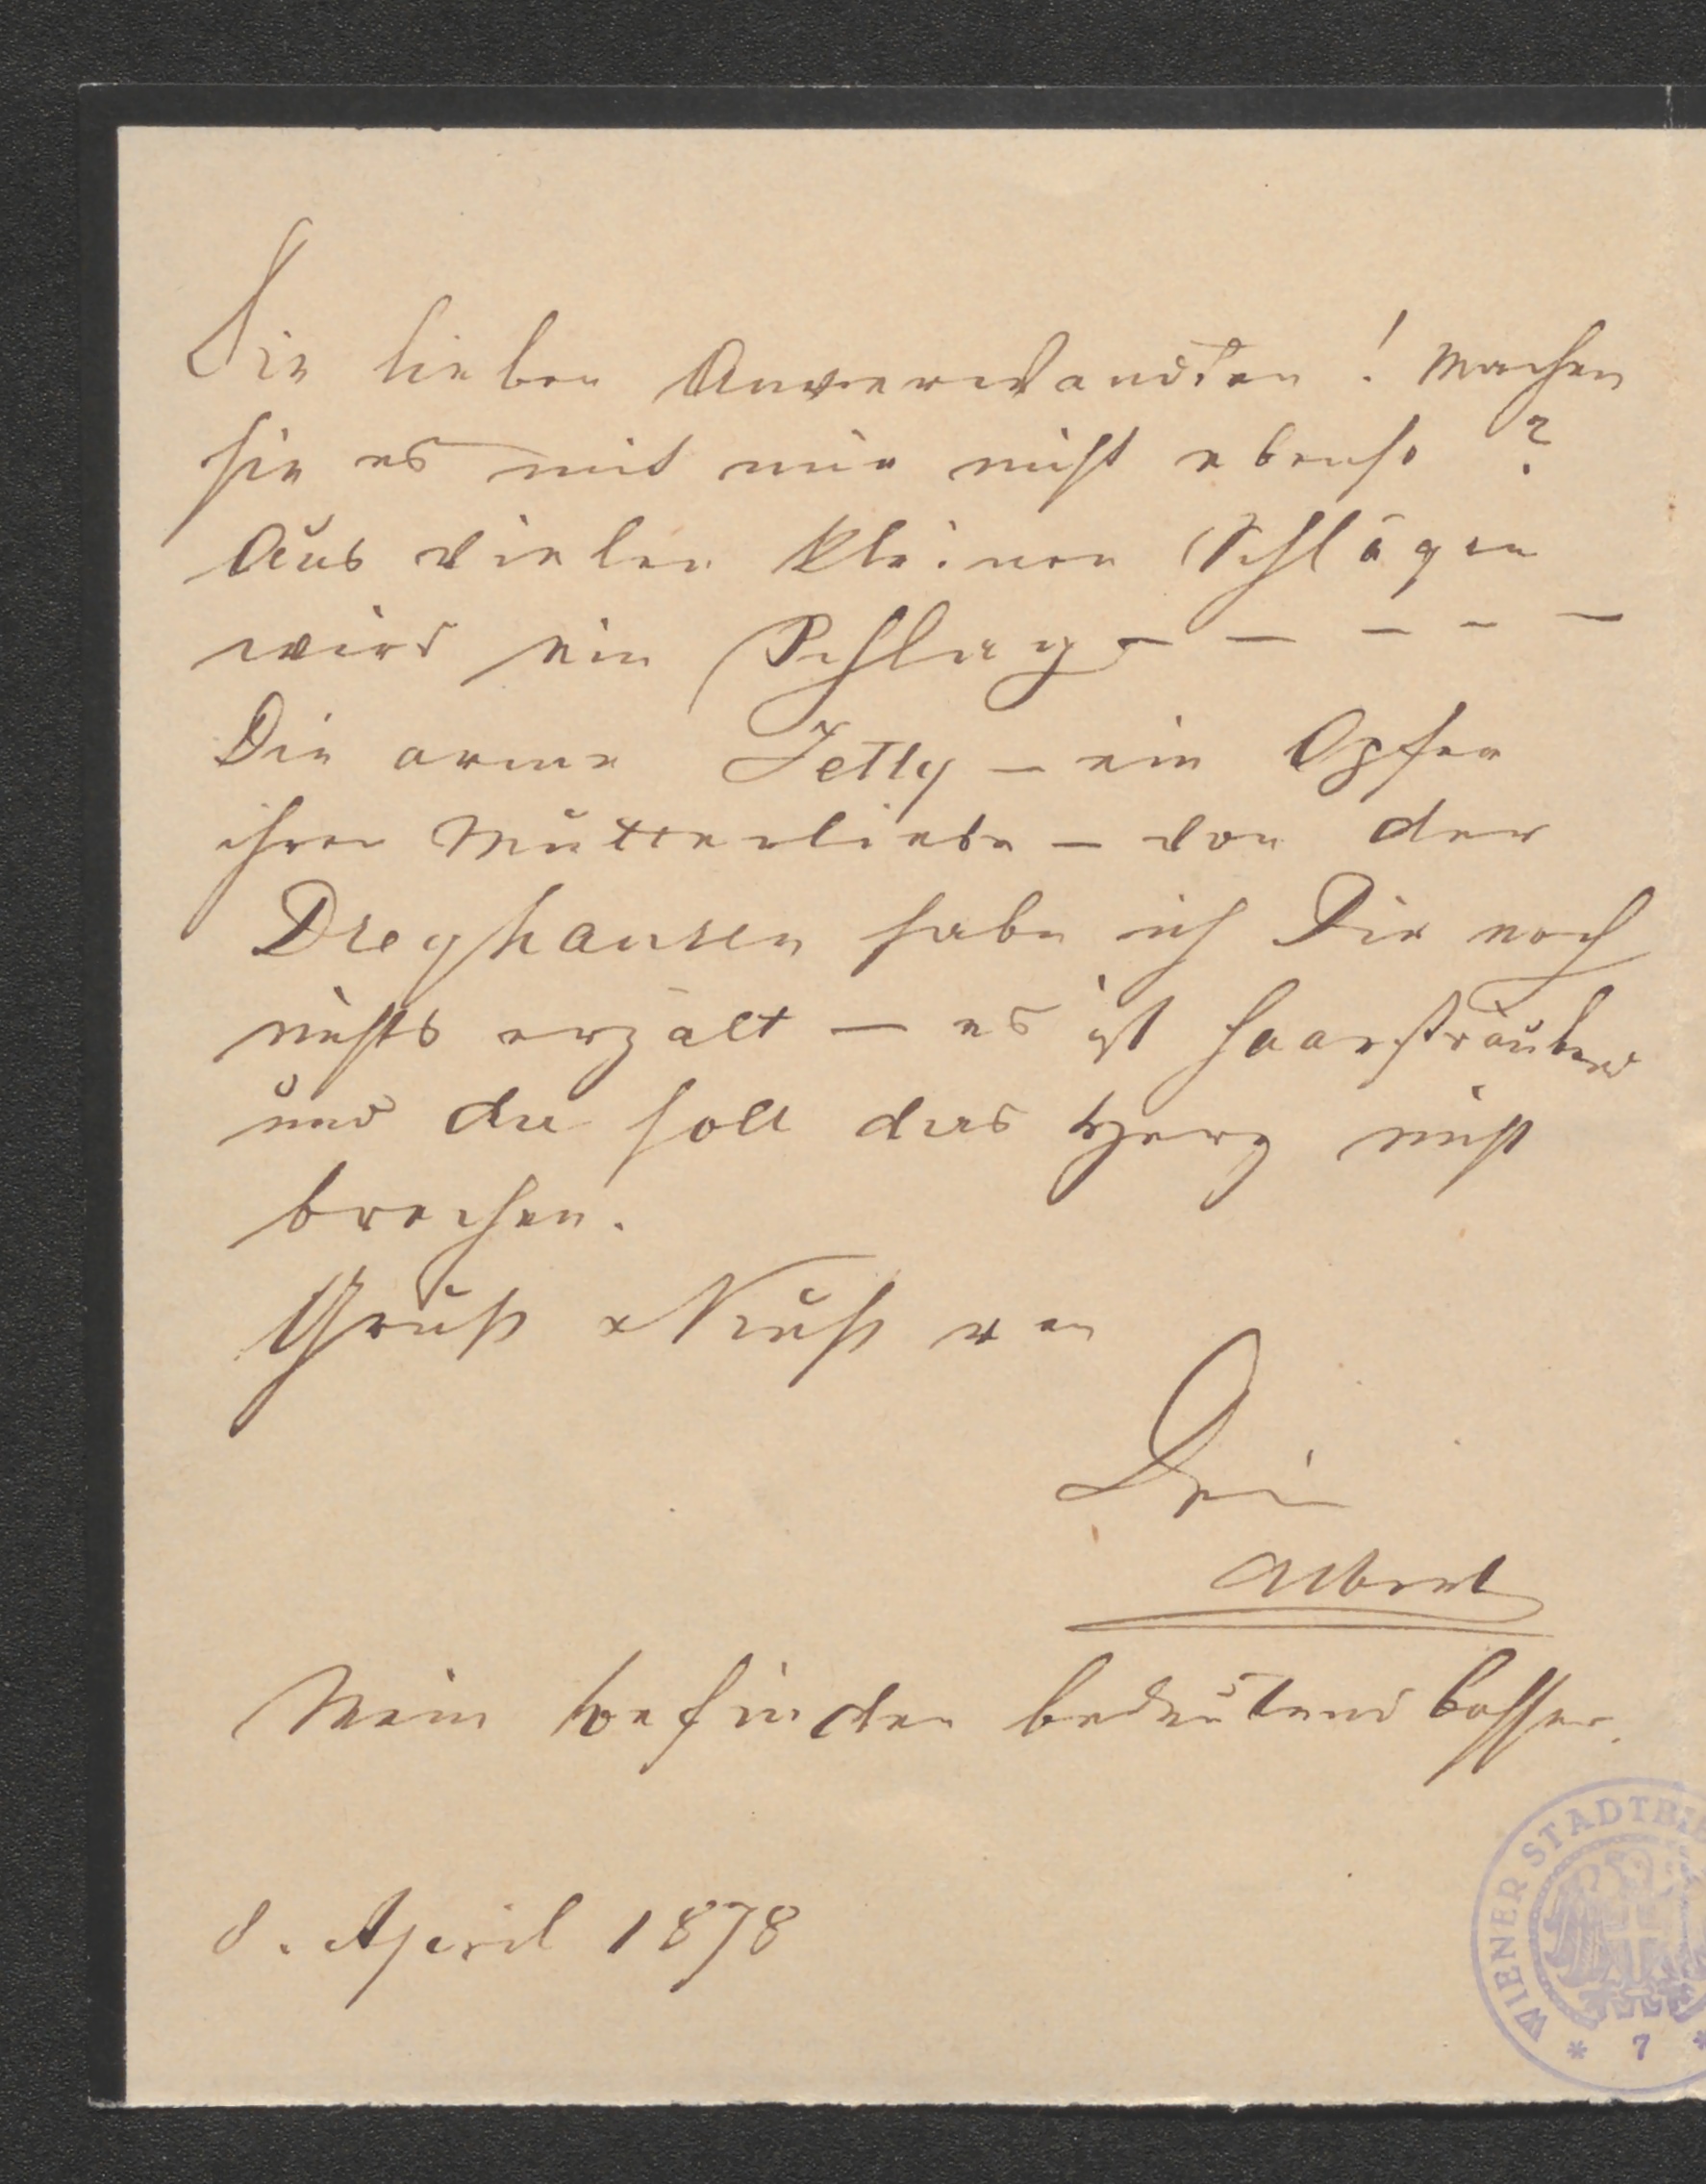 Die lieben Anverwandten! Machen
sie es mit mir nicht ebenso?
Aus vielen kleinen Schlägen
wird ein Schlag – – – – –
Die arme Jetty – ein Opfer
ihrer Mutterliebe – von der
Dreyhausen habe ich Dir noch
nichts erzält – es ist haarsträubend
und da soll das Herz nicht
brechen.
Gruß & Kuß von
Dein
Albert
Mein befinden bedeutend besser.
8. April 1878
WIENER STADTBI
* 7 *